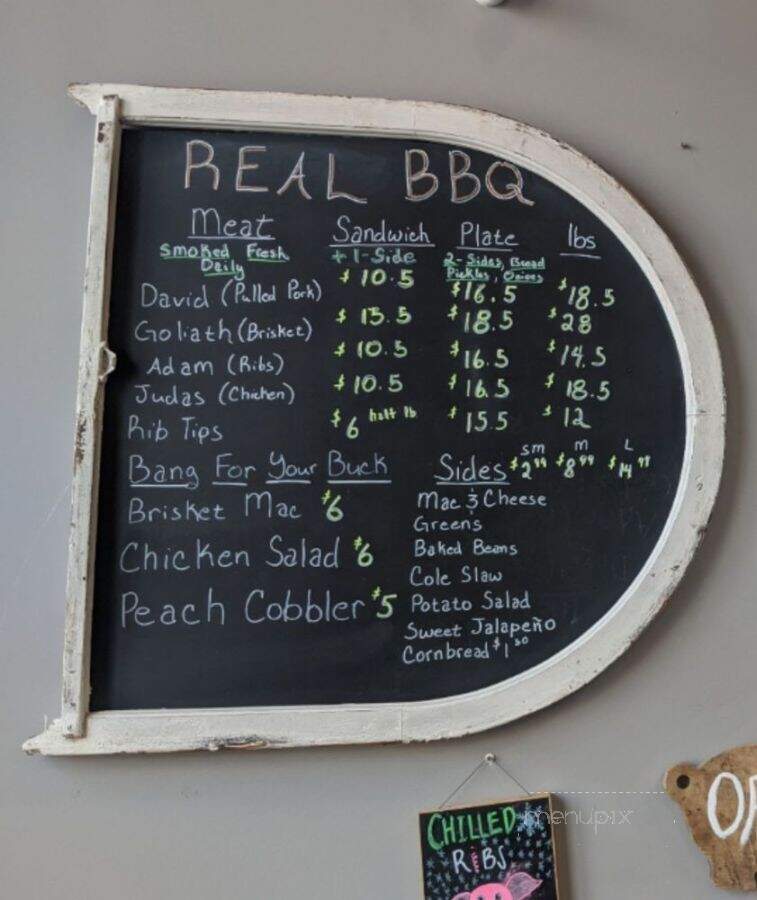 REAL BBQ
Meat Sandwich Plate lbs
Smoked Fresh Daily + 1-Side 2-Sides, Bread Pickles, Onions
David (Pulled Pork) $10.5 $16.5 $18.5
Goliath (Brisket) $15.5 $18.5 $28
Adam (Ribs) $10.5 $16.5 $14.5
Judas (Chicken) $10.5 $16.5 $18.5
Rib Tips $6 half lb $15.5 $12
Bang For Your Buck
Brisket Mac $6
Chicken Salad $6
Peach Cobbler $5
Sides sm $2.99 m $8.99 L $14.99
Mac & Cheese
Greens
Baked Beans
Cole Slaw
Potato Salad
Sweet Jalapeño
Cornbread $1.50
CHILLED
RIBS
menupix